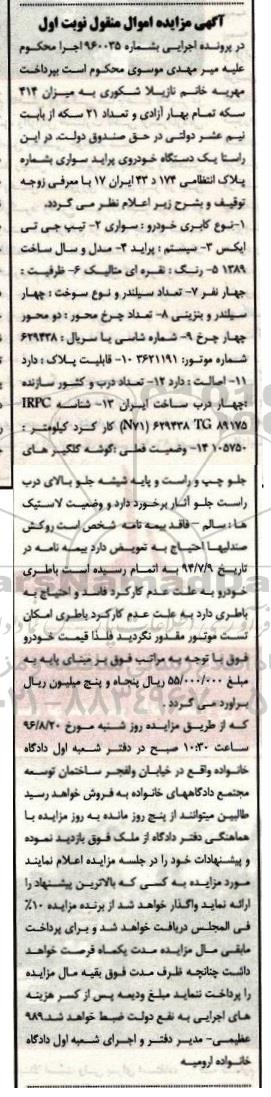 آگهی مزایده اموال منقول نوبت اول
در پرونده اجرایی بشماره ۹۶۰۰۳۵ اجرا محکوم
علیه میر مهدی موسوی محکوم است بپرداخت
مهریه خانم نازیلا شکوری به میزان ۴۱۴
سکه تمام بهار آزادی و تعداد ۲۱ سکه از بابت
نیم عشر دولتی در حق صندوق دولت. در این
راستا یک دستگاه خودروی پراید سواری بشماره
پلاک انتظامی ۱۷۴ د ۴۳ ایران ۱۷ با معرفی زوجه
توقیف و بشرح زیر اعلام نظر می گردد.
۱-نوع کاپری خودرو : سواری ۲- تیپ جی تی
ایکس ۳- سیستم : پراید ۴- مدل و سال ساخت
۱۳۸۹ ۵- رنگ : نقره ای متالیک ۶- ظرفیت :
چهار نفر ۷- تعداد سیلندر و نوع سوخت : چهار
سیلندر و بنزینی ۸- تعداد چرخ محور : دو محور
چهار چرخ ۹- شماره شاسی یا سریال : ۶۲۹۴۳۸
شماره موتور: ۳۶۲۱۱۹۱ ۱۰- قابلیت پلاک : دارد
۱۱- اصالت : دارد ۱۲- تعداد درب و کشور سازنده
:چهار درب ساخت ایران ۱۳- شناسه IRPC
۸۹۱۷۵ TG ۶۲۹۴۳۸ (N۷۱) کار کرد کیلومتر :
۱۰۵۷۵۰ ۱۴- وضعیت فعلی :گوشه گلگیر های
جلو چپ و راست و پایه شیشه جلو بالای درب
راست جلو آثار برخورد دارد و وضعیت لاستیک
ها : سالم - فاقد بیمه نامه شخص است روکش
صندلیها احتیاج به تعویض دارد بیمه نامه در
تاریخ ۹۴/۷/۹ به اتمام رسیده است باطری
خودرو به علت عدم کارکرد فاسد و احتیاج به
باطری دارد به علت عدم کارکرد باطری امکان
تست موتور مقدور نگردید فلذا قیمت خودرو
فوق با توجه به مراتب فوق بر مبنای پایه به
مبلغ ۵۵/۰۰۰/۰۰۰ ریال پنجاه و پنج میلیون ریال
برآورد می گردد .
که از طریق مزایده روز شنبه مورخ ۹۶/۸/۲۰
ساعت ۱۰:۳۰ صبح در دفتر شعبه اول دادگاه
خانواده واقع در خیابان والفجر ساختمان توسعه
مجتمع دادگاههای خانواده به فروش خواهد رسید
طالبین میتوانند از پنج روز مانده به روز مزایده با
هماهنگی دفتر دادگاه از ملک فوق بازدید نموده
و پیشنهادات خود را در جلسه مزایده اعلام نمایند
مورد مزایده به کسی که بالاترین پیشنهاد را
ارائه نماید واگذار خواهد شد از برنده مزایده ۱۰٪
فی المجلس دریافت خواهد شد و برای پرداخت
مابقی مال مزایده مدت یکماه فرصت خواهد
داشت چنانچه ظرف مدت فوق بقیه مال مزایده
را پرداخت ننماید مبلغ ودیعه پس از کسر هزینه
های اجرایی به نفع دولت ضبط خواهد شد.۹۸۹
عظیمی- مدیر دفتر و اجرای شعبه اول دادگاه
خانواده ارومیه